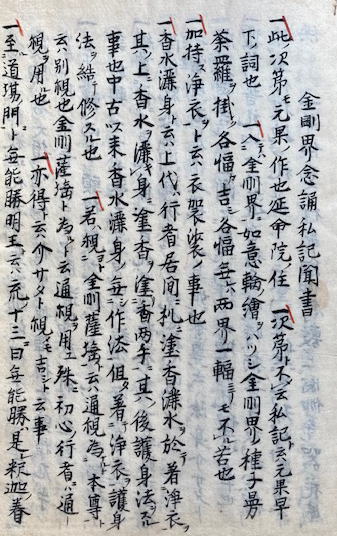 金剛界念誦私記聞書
一此ノ次第モ元杲ノ作也延命院ノ住 一次第ト不シテ云私記ト云元杲早
下ノ詞也 一入テハ金剛界ニ如意輪ノ繪ハリシ金剛界ノ種子曼
荼羅ヲ掛ク各幅吉シ各幅毎ニ六両界一輻ニテモ不苦也
一加持ス浄衣ヲト云ハ衣袈裟ノ事也
一香水灑身ト云ハ上代ノ行者居門ニ札ニ塗香灑水ヲ於テ着浄衣ヲ
其ノ上ニ香水ヲ灑キ身ニ塗香ヲ塗香両手ニ其ノ後護身法スル
事也中古以来香水灑身ノ毎シ作法但タ着テ浄衣ヲ護身
法ヲ結テ修スル也 一若ハ観ヨト金剛薩埵ト云ハ通観為ルト本尊ト
云ハ別観也金剛薩埵ト為ルト云通観ヲ用ユ殊ニ初心ノ行者ハ通
観ヲ用ル也 一亦得ト云ハ介サタト観モ吉シト云事
一至ル道場門ニト毎能勝明王ト云ハ 十三日毎能勝ハ是釈迦ノ眷